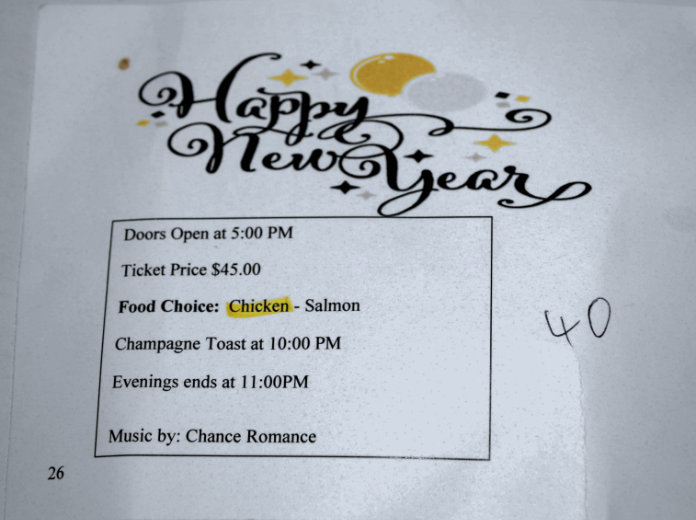 Happy
New Year
Doors Open at 5:00 PM
Ticket Price $45.00
Food Choice: Chicken - Salmon
40
Champagne Toast at 10:00 PM
Evenings ends at 11:00PM
Music by: Chance Romance
26